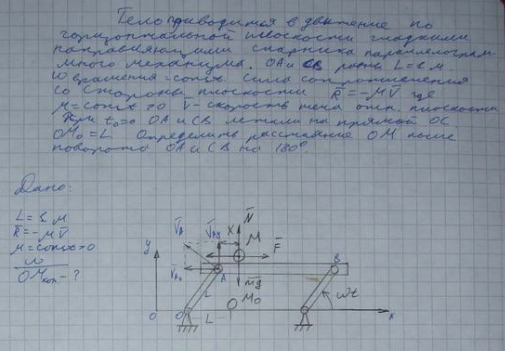 Тело приводится в движение по
горизонтальной плоскости гладкими
направляющими спарника параллелограм
много механизма. OA и CB равны L = 1 м
W вращения = const Сила сопротивления
со стороны плоскости R̅ = -μV̅ где
μ = const > 0 V̅ - скорость тела отн. плоскости
При t₀ = 0 OA и CB лежали на прямой OC
OM₀ = L Определить расстояние OM после
поворота OA и CB на 180°.
Дано:
L = 1 м
R̅ = -μV̅
μ = const > 0
ω
OMкон - ?
N̅
V̅A
V̅Ay
X
M
F̅
y
B
V̅Ax
A
mg̅
L
ωt
O
M₀
O
O
L
x